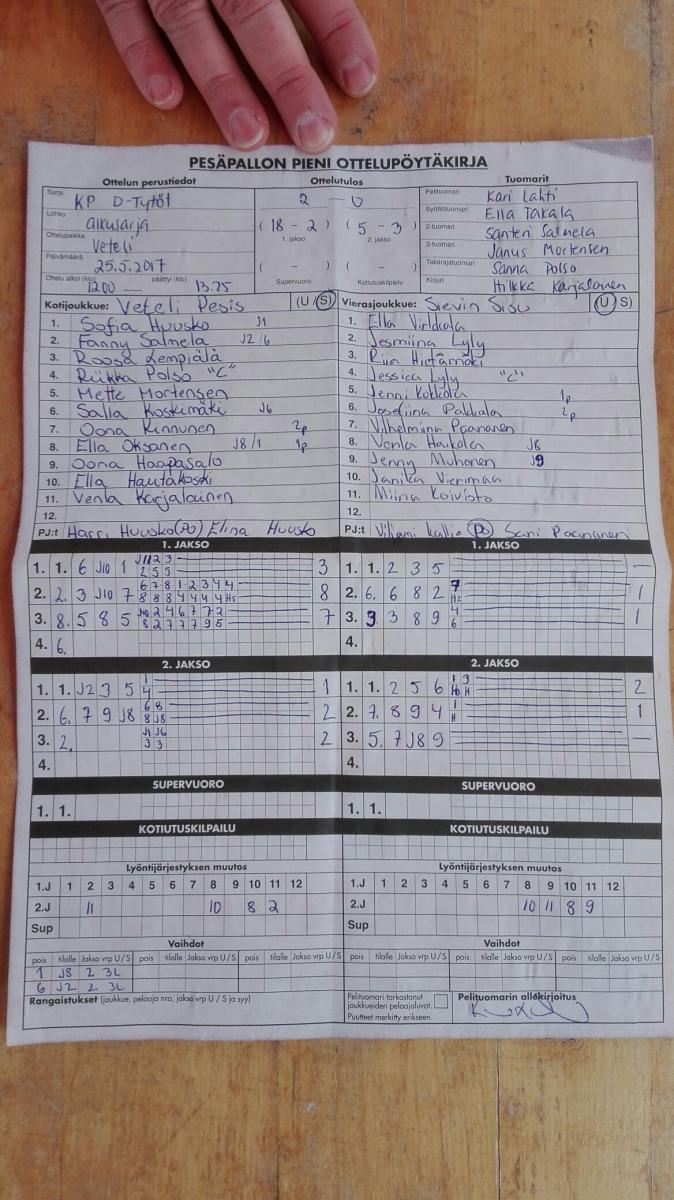 PESÄPALLON PIENI OTTELUPÖYTÄKIRJA
Ottelun perustiedot Ottelutulos Tuomarit
Sarja KP D-Tytöt 2 - 0 Pelituomari Kari Lahti
Lohko alkusarja (18 - 2) (5 - 3) Syöttötuomari Ella Takala
1. jakso 2. jakso
Ottelupaikka Veteli 2-tuomari Santeri Salmela
Päivämäärä 25.5.2017 (-) (-) 3-tuomari Janus Mortensen
Takarajatuomari Sanna Polso
Ottelu alkoi (klo) 1200 päättyi (klo) 13.25 Supervuoro Kotiutuskilpailu Kirjuri Hilkka Karjalainen
Kotijoukkue: Veteli Pesis (U / S) Vierasjoukkue: Sievin Sisu (U / S)
1. Sofia Huusko J1 1. Ella Virldkala
2. Fanny Salmela J2/6 2. Jesmiina Lyly
3. Roosa Lempiälä 3. Riia Hietamäki
4. Riikka Polso "C" 4. Jessica Lyly "C"
5. Mette Mortensen 5. Jenni Kokkola 1p
6. Salla Koskimäki J6 6. Josefiina Pakkala 2p
7. Oona Kinnunen 2p 7. Vilhelmiina Paananen
8. Ella Oksanen J8/1 1p 8. Venla Haikola J8
9. Oona Haapasalo 9. Jenny Muhonen J9
10. Ella Hautakoski 10. Janika Vierimaa
11. Venla Karjalainen 11. Miina Koivisto
12. 12.
PJ:t Harri Huusko (PJ) Elina Huusko PJ:t Viljami Kallio Sari Paananen
1. JAKSO 1. JAKSO
1. 1. 6 J10 1 3 1. 1. 2 3 5 —
2. 2. 3 J10 7 8 2. 6. 6 8 2 1
3. 8. 5 8 5 7 3. 9. 3 8 9 1
4. 6. 4.
2. JAKSO 2. JAKSO
1. 1. J2 3 5 1 1. 1. 2 5 6 2
2. 6. 7 9 J8 2 2. 7. 8 9 4 1
3. 2. 2 3. 5. 7 J8 9 —
4. 4.
SUPERVUORO SUPERVUORO
1. 1. 1. 1.
KOTIUTUSKILPAILU KOTIUTUSKILPAILU
Lyöntijärjestyksen muutos Lyöntijärjestyksen muutos
1.J 1 2 3 4 5 6 7 8 9 10 11 12 1.J 1 2 3 4 5 6 7 8 9 10 11 12
2.J 11 10 8 2 2.J 10 11 8 9
Sup Sup
Vaihdot Vaihdot
pois tilalle Jakso vrp U / S pois tilalle Jakso vrp U / S pois tilalle Jakso vrp U / S pois tilalle Jakso vrp U / S pois tilalle Jakso vrp U / S pois tilalle Jakso vrp U / S
1 J8 2 3L
6 J2 2 3L
Rangaistukset (joukkue, pelaaja nro, jakso vrp U / S ja syy) Pelituomari tarkastanut Pelituomarin allekirjoitus
joukkueiden pelaajaluvat.
Puutteet merkitty erikseen.